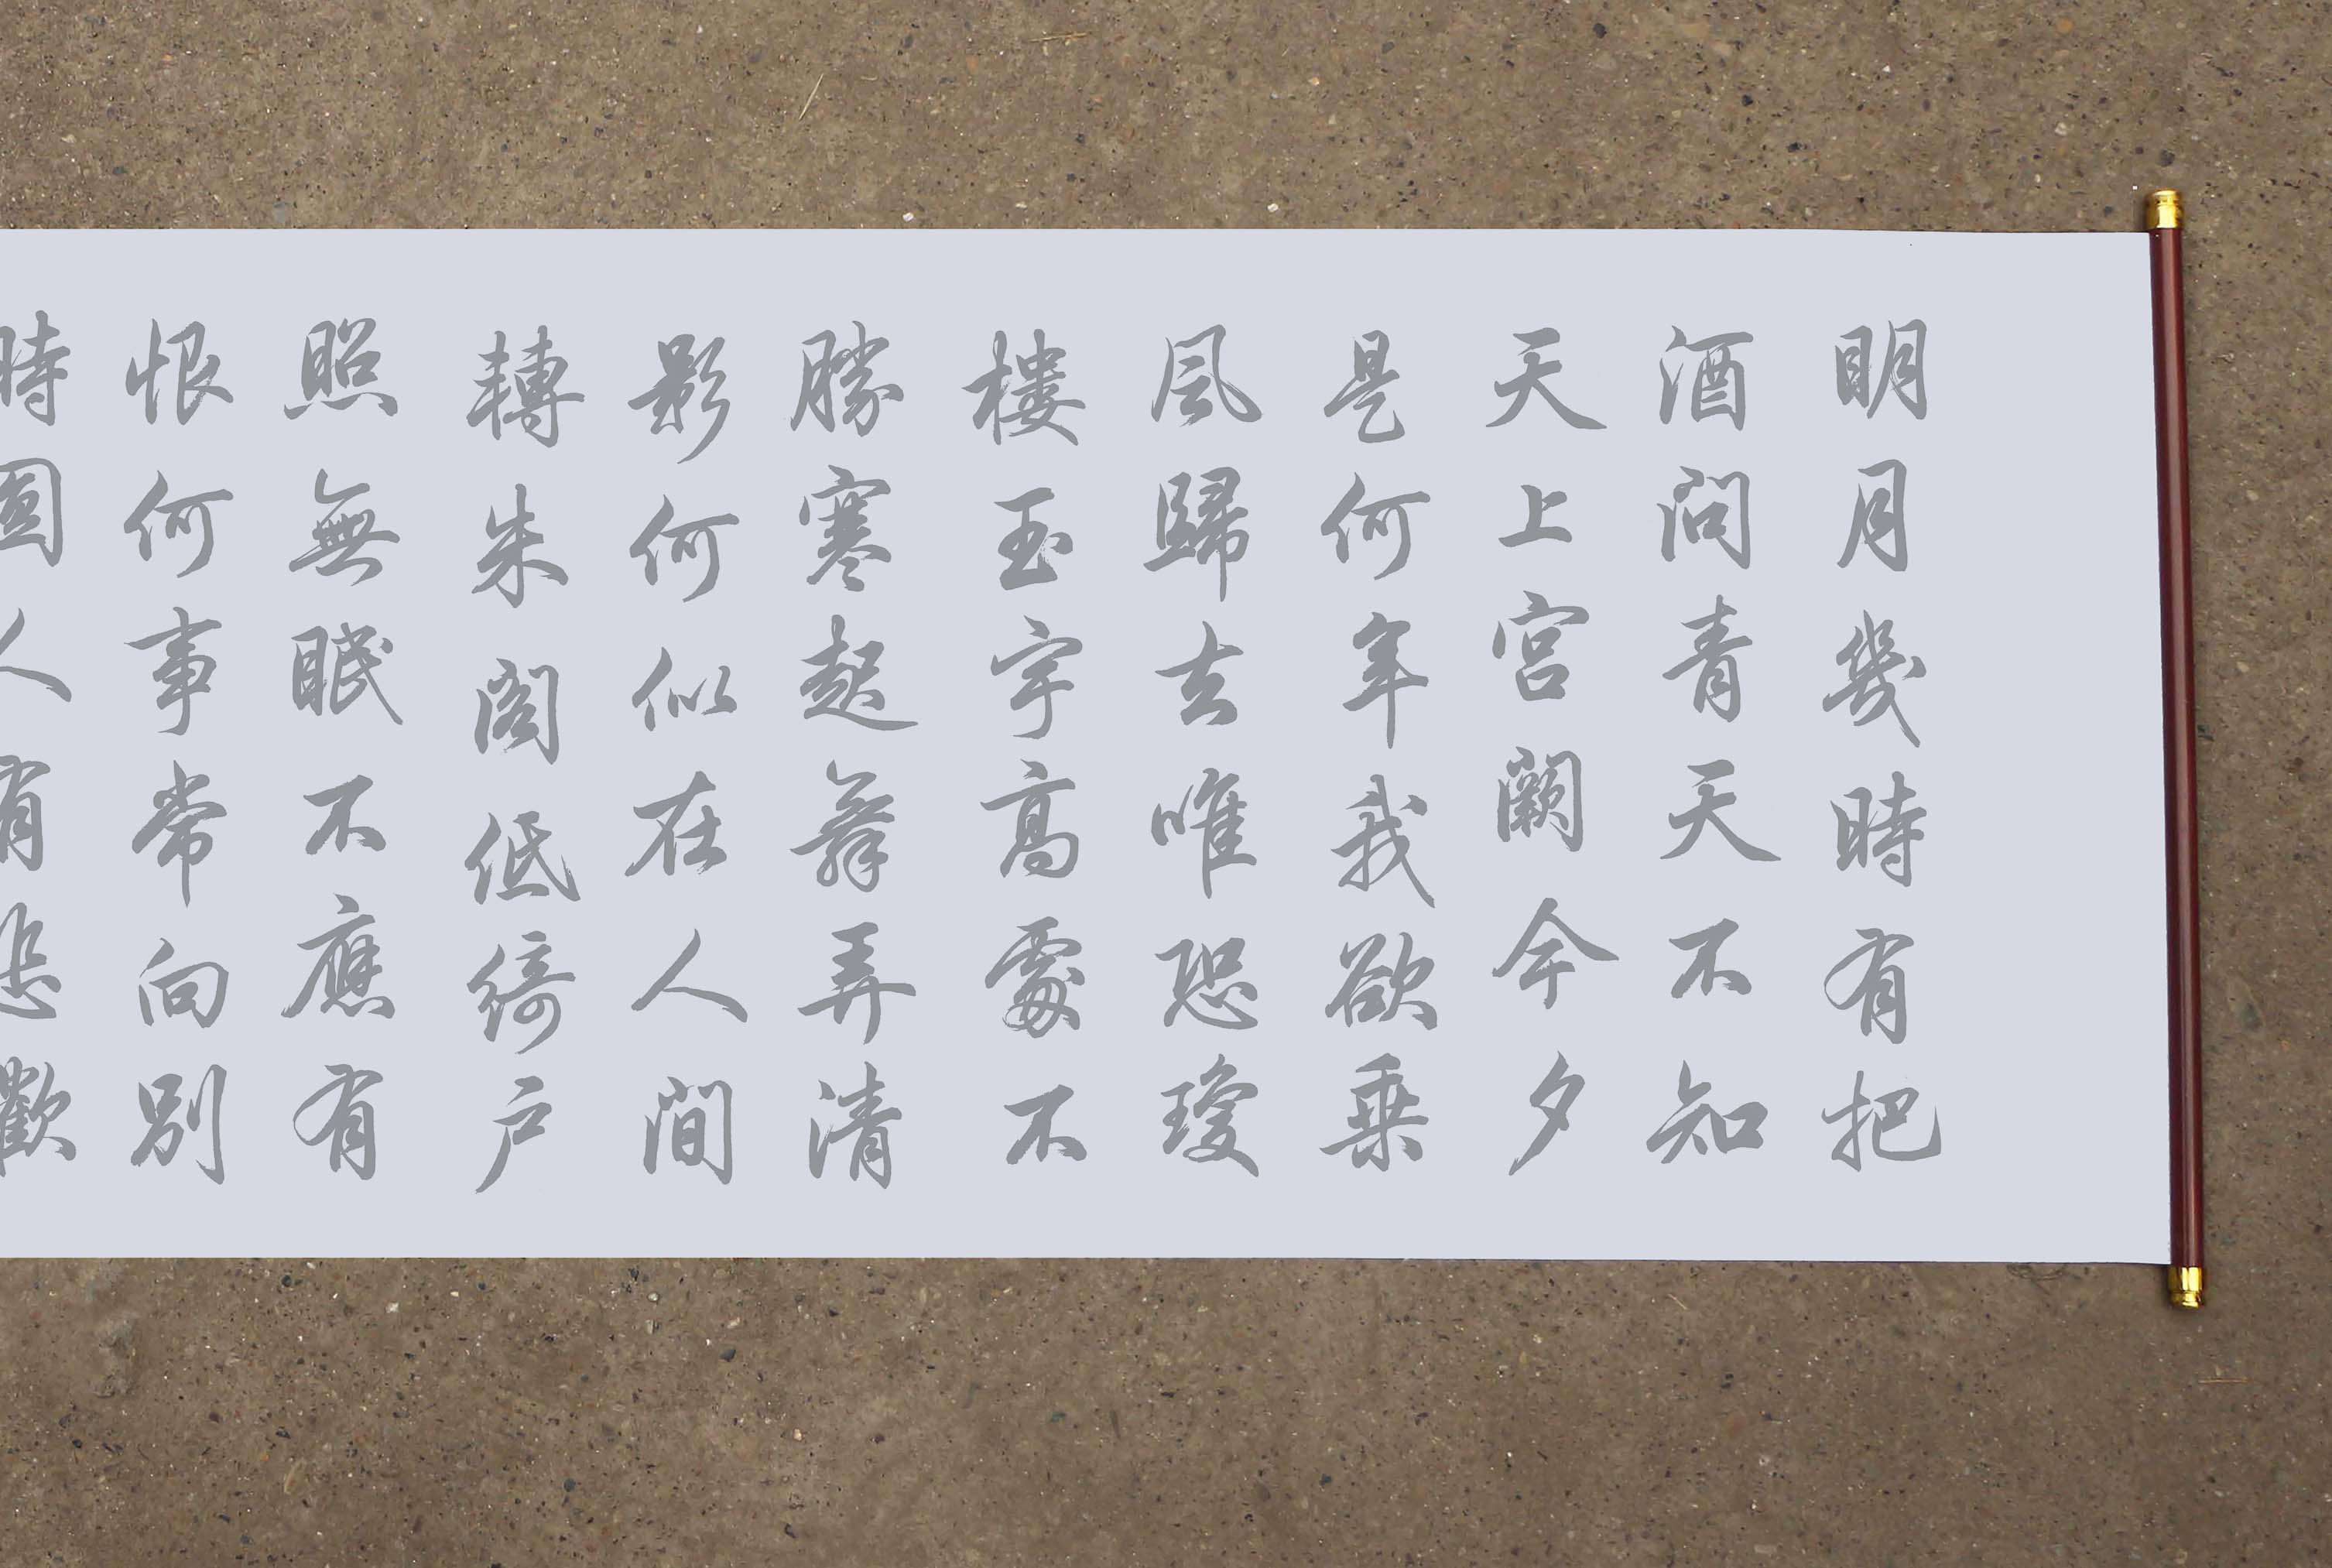 明月幾時有把
酒問青天不知
天上宮闕今夕
是何年我欲乗
風歸去唯恐瓊
樓玉宇高處不
勝寒起舞弄清
影何似在人間
轉朱閣低綺户
照無眠不應有
恨何事常向別
時圓人有悲歡